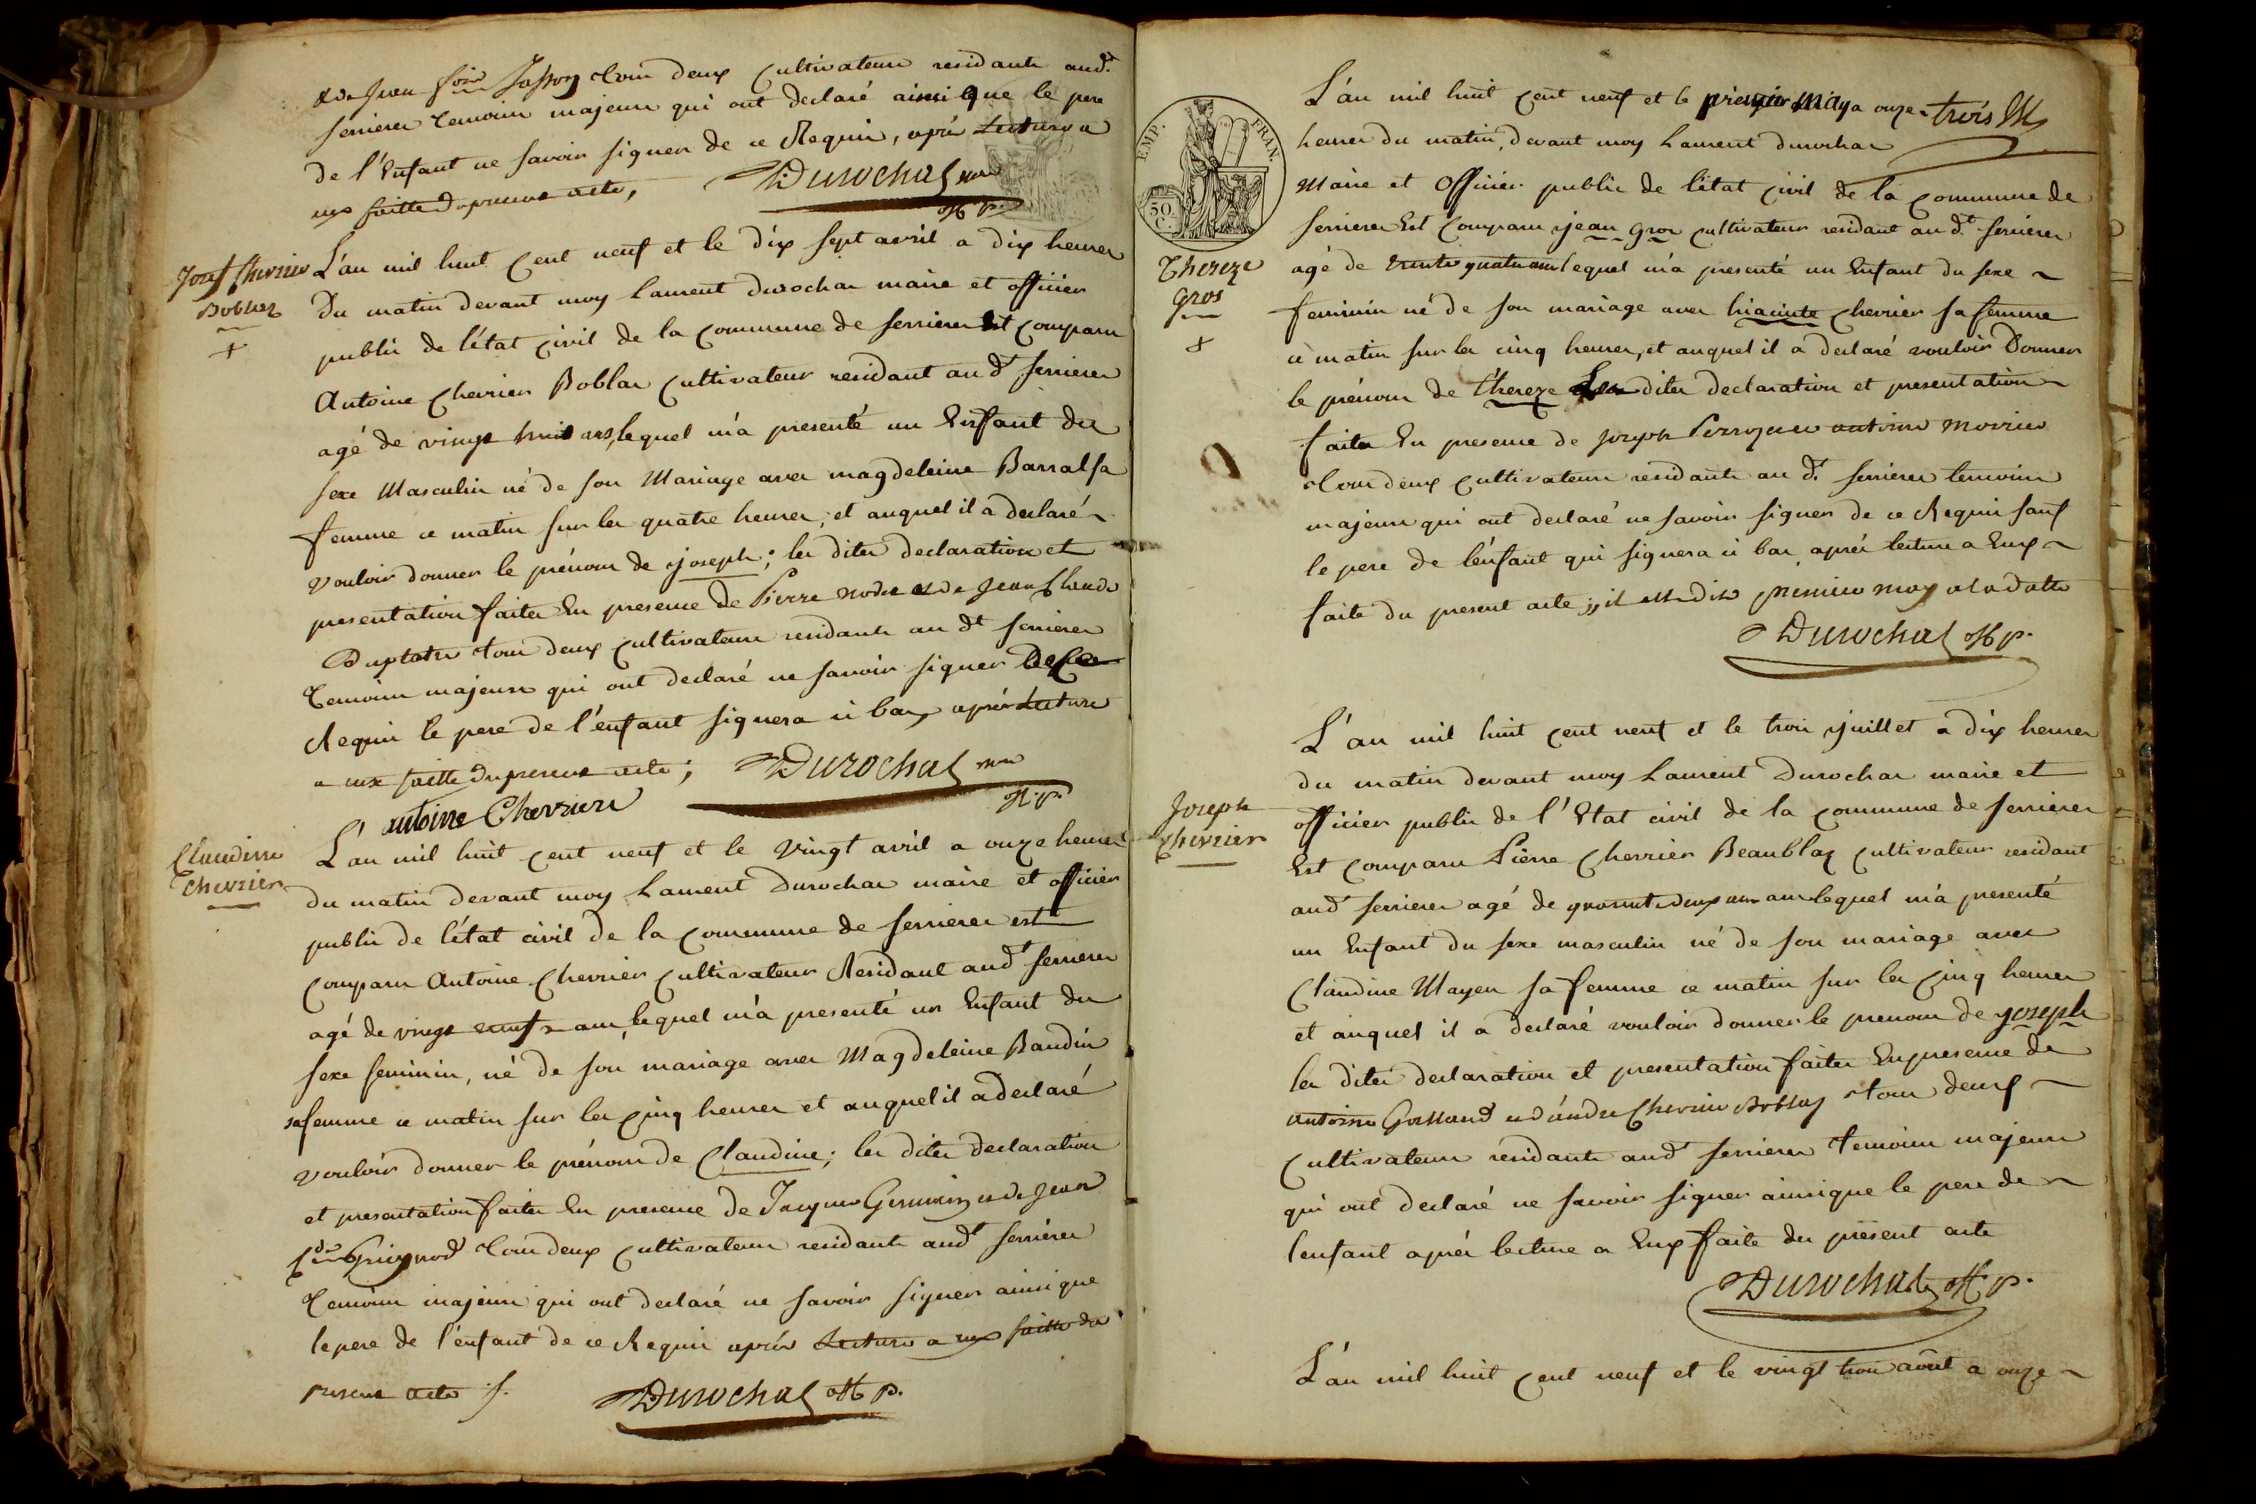 Jean Tous deux Cultivateurs residants aud.t
serrieres temoins majeurs qui ont declaré ainsi que le pere
de l'Enfant ne savoir signer de ce Requis, après Lecture a
eux faitte du present acte,
Durochat mre
off p.
Josef Chevrier
Boblas
L'an mil huit cent neuf et le dix sept avril a dix heures
Du matin devant moy Laurent durochas maire et officier
public de l'état civil de la commune de serrieres Est comparu
Antoine Chevrier Boblas Cultivateur residant aud.t serrieres
agé de vingt huit ans, lequel m'a presenté un Enfant du
sexe Masculin né de son Mariage avec magdeleine Barral sa
femme ce matin sur les quatre heures, et auquel il a declaré
Vouloir donner le prénom de joseph; les dites declaration et
presentation faites En presence de Pierre et de Jean Claude
tous deux cultivateurs residants aud.t serrieres
Temoins majeurs qui ont declaré ne savoir signer de ce
Requis le pere de l'enfant signera ci bas, après Lecture
a eux faitte du present acte;
Durochat mre
off. p.
antoine Chevrier
Claudine
Chevrier
L'an mil huit cent neuf et le Vingt avril a onze heures
du matin devant moy Laurent Durochas maire et officier
public de l'état civil de la commune de serrieres est
comparu Antoine Chevrier cultivateur Residant aud.t serrieres
agé de vingt neuf ans, lequel m'a presenté un Enfant du
sexe feminin, né de son mariage avec Magdeleine Baudin
sa femme ce matin sur les cinq heures et auquel il a declaré
vouloir donner le prénom de Claudine; les dites declaration
et presentation faites En presence de Jacques et de Jean
Tous deux cultivateurs residants aud.t serrieres
Temoins majeurs qui ont declaré ne savoir signer ainsi que
le pere de l'enfant de ce Requis après Lecture a eux faitte du
present acte
Durochat off p.
EMP. FRAN.
50 C.
trois M
L'an mil huit cent neuf et le premier May a onze
heures du matin, devant moy Laurent durochas
Maire et Officier public de l'état civil de la commune de
serrieres Est comparu jean gros cultivateur residant aud.t serrieres
Thereze
gros
agé de trente quatre ans lequel m'a presenté un Enfant du sexe
feminin né de son mariage avec hiacinte Chevrier sa femme
ce matin sur les cinq heures, et auquel il a declaré vouloir Donner
le prénom de thereze Les dites declaration et presentation
faites En presence de joseph antoine
tous deux cultivateurs residants aud.t serrieres temoins
majeurs qui ont declaré ne savoir signer de ce Requis sauf
le pere de l'enfant qui signera ci bas après lecture a Eux
faite du present acte; il est dit premier may a la datte
Durochat off p.
L'an mil huit cent neuf et le trois juillet a dix heures
du matin devant moy Laurent Durochas maire et
Joseph
Chevrier
officier public de l'Etat civil de la commune de serrieres
Est comparu Pierre Chevrier Beaublas cultivateur residant
aud.t serrieres agé de quarante deux ans lequel m'a presenté
un Enfant du sexe masculin né de son mariage avec
Claudine Mayen sa femme ce matin sur les cinq heures
et auquel il a declaré vouloir donner le prenom de joseph
les dites declaration et presentation faites En presence de
antoine et d'andre Chevrier Boblas tous deux
Cultivateurs residants aud.t serrieres temoins majeurs
qui ont declaré ne savoir signer ainsi que le pere de
l'enfant après lecture a Eux faite du present acte
Durochat off p.
L'an mil huit cent neuf et le vingt trois août a onze